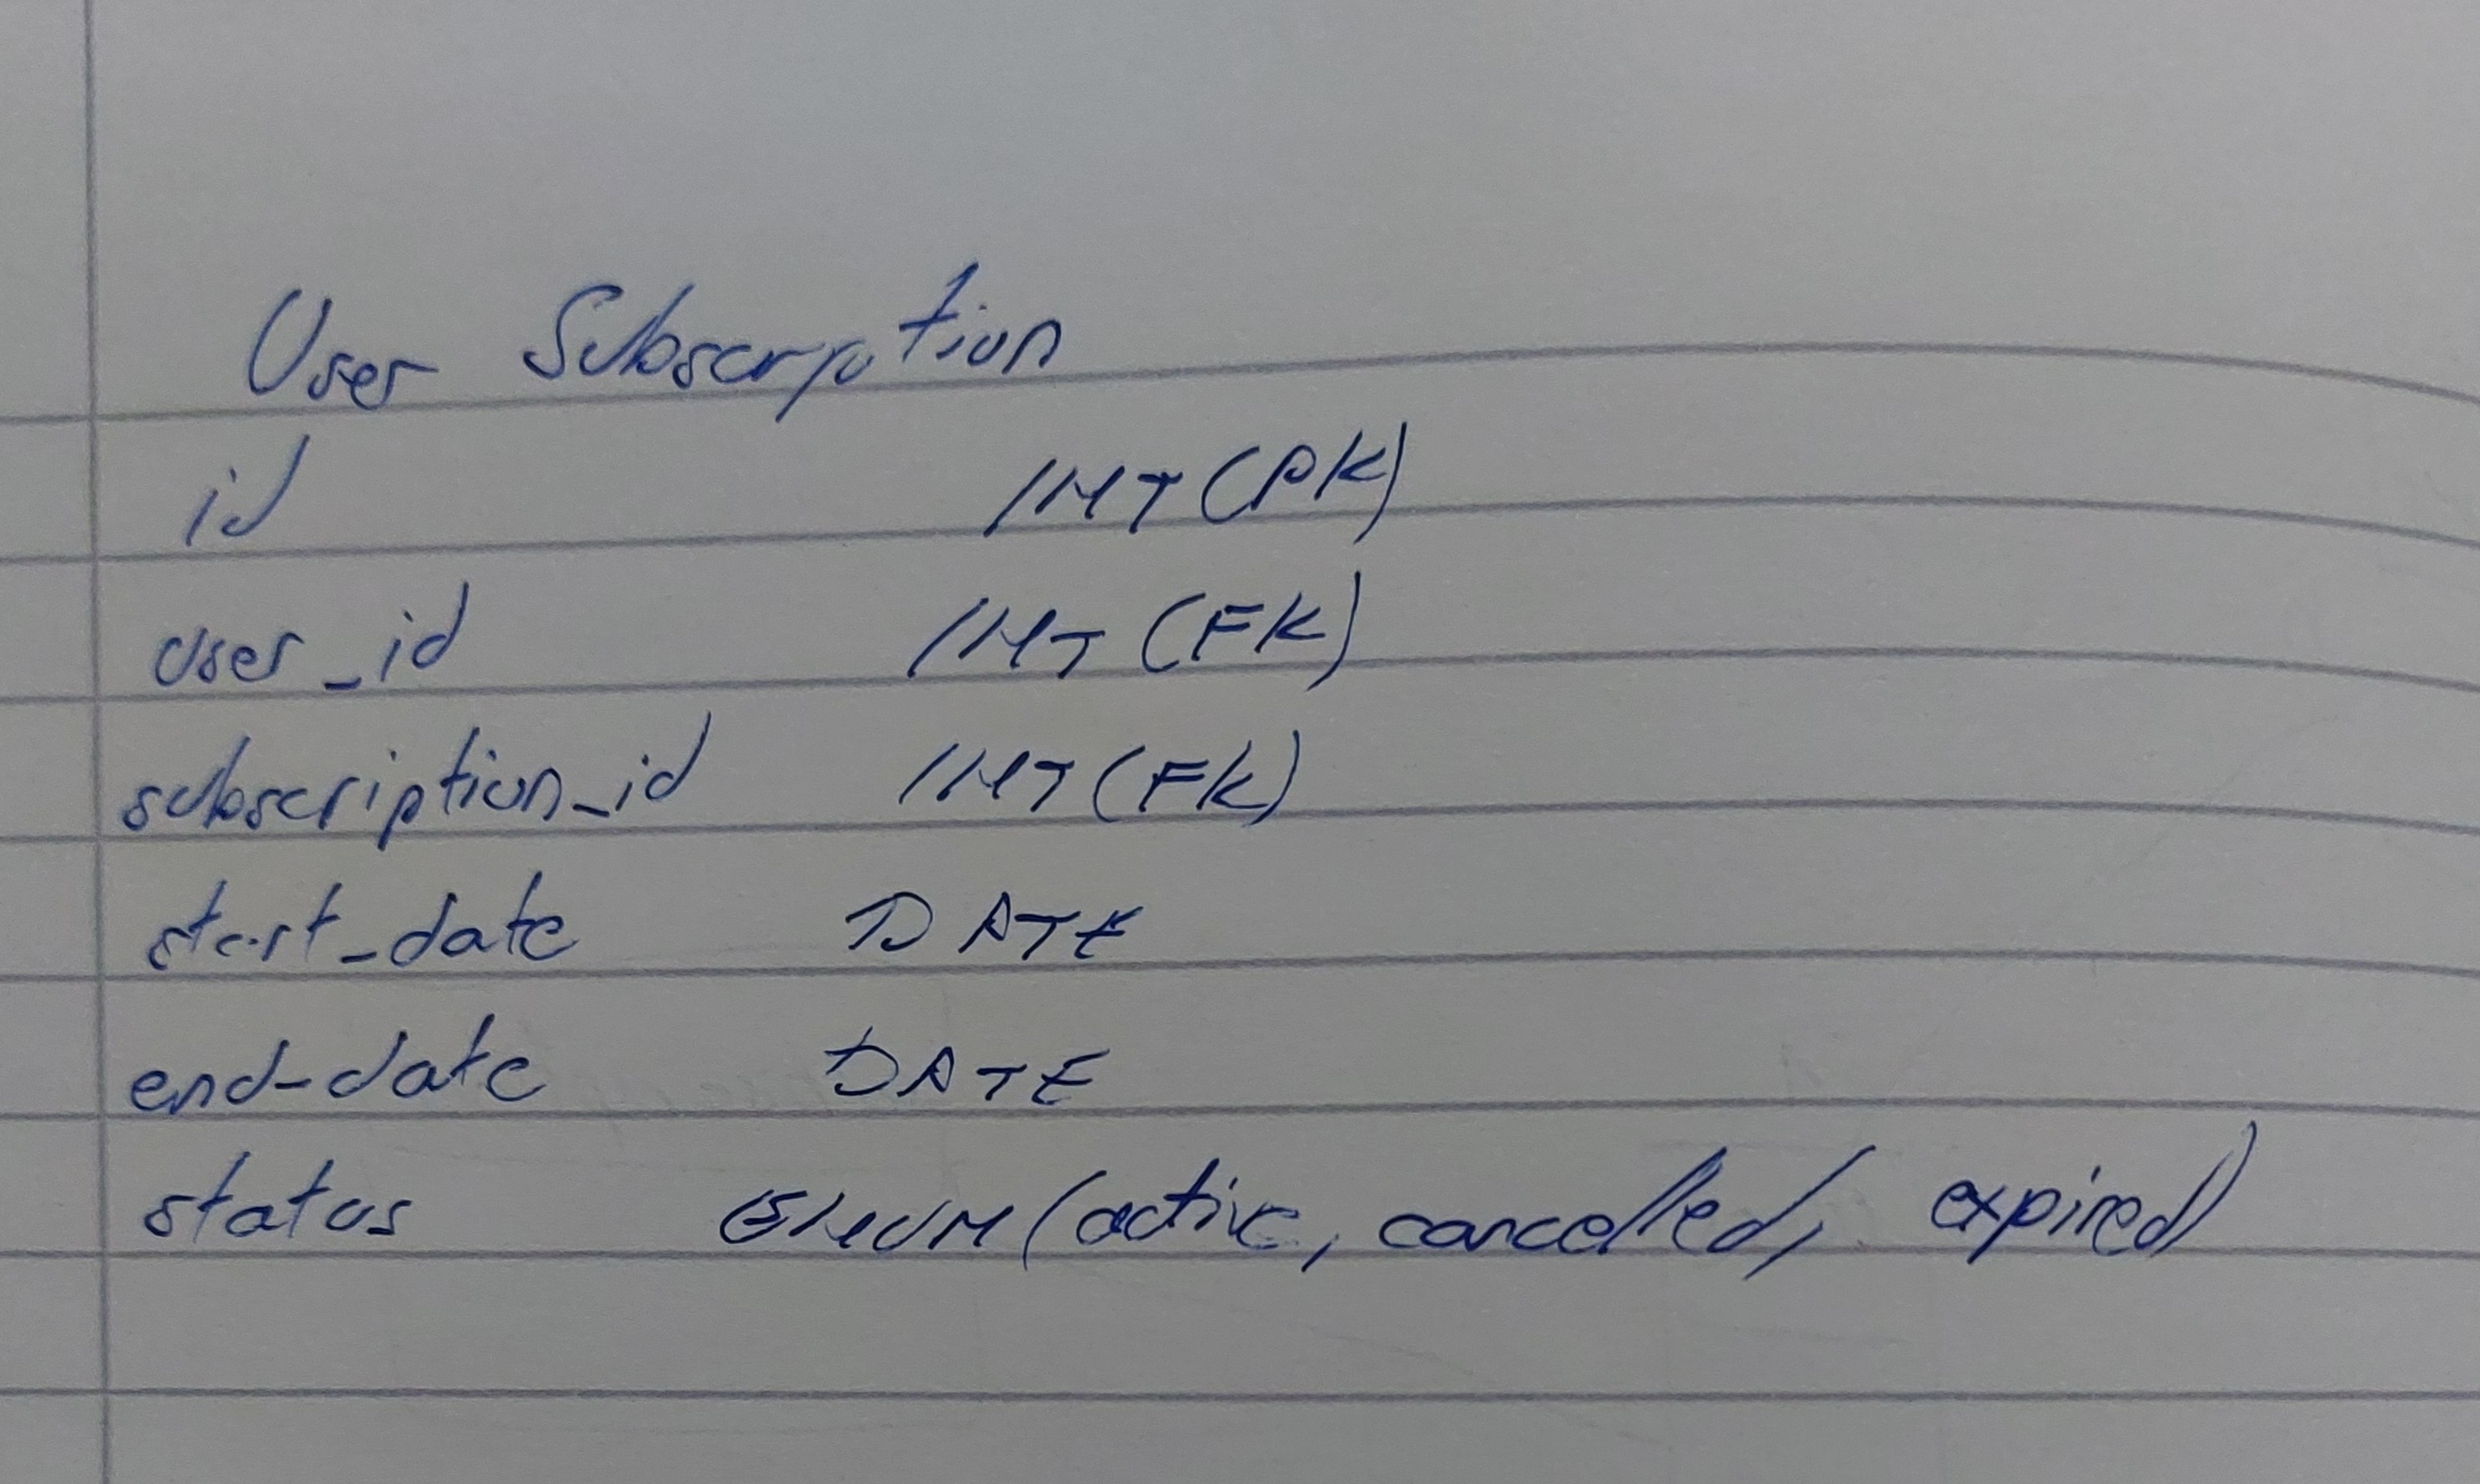 User Subscription
id INT (PK)
user_id INT (FK)
subscription_id INT (FK)
start_date DATE
end-date DATE
status ENUM (active, cancelled, expired)